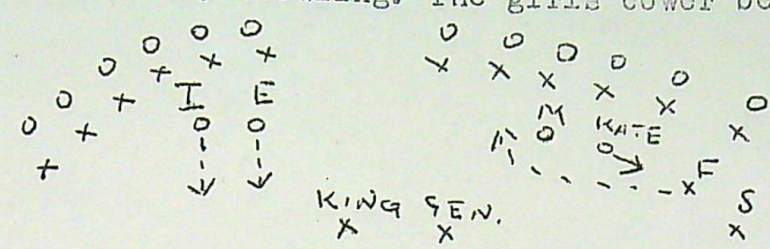 The girls cower be
I E
M KATE
M
F
KING GEN. S